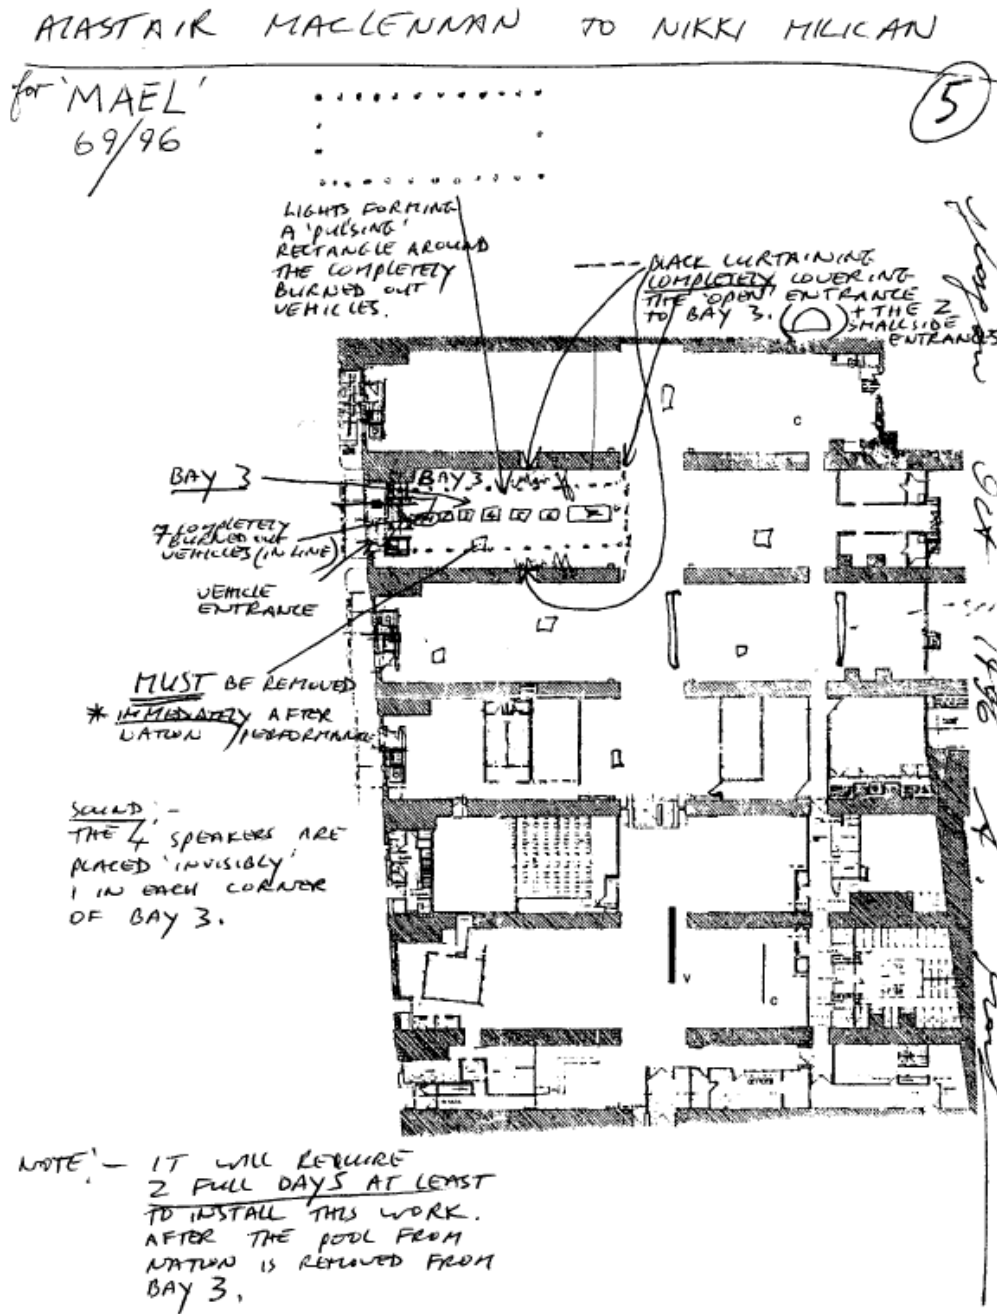 ALASTAIR MACLENNAN TO NIKKI MILICAN
for 'MAEL'
69/96
5
LIGHTS FORMING
A 'PULSING'
RECTANGLE AROUND
THE COMPLETELY
BURNED OUT
VEHICLES.
BLACK CURTAINING
COMPLETELY COVERING
THE 'OPEN' ENTRANCE
TO BAY 3. + THE 2
SMALL SIDE
ENTRANCES
BAY 3
BAY 3
7 COMPLETELY
BURNED OUT
VEHICLES (IN LINE)
VEHICLE
ENTRANCE
MUST BE REMOVED
* IMMEDIATELY AFTER
NATION PERFORMANCE
SOUND:-
THE 4 SPEAKERS ARE
PLACED 'INVISIBLY'
1 IN EACH CORNER
OF BAY 3.
C
V
C
NOTE:- IT WILL REQUIRE
2 FULL DAYS AT LEAST
TO INSTALL THIS WORK.
AFTER THE POOL FROM
NATION IS REMOVED FROM
BAY 3.